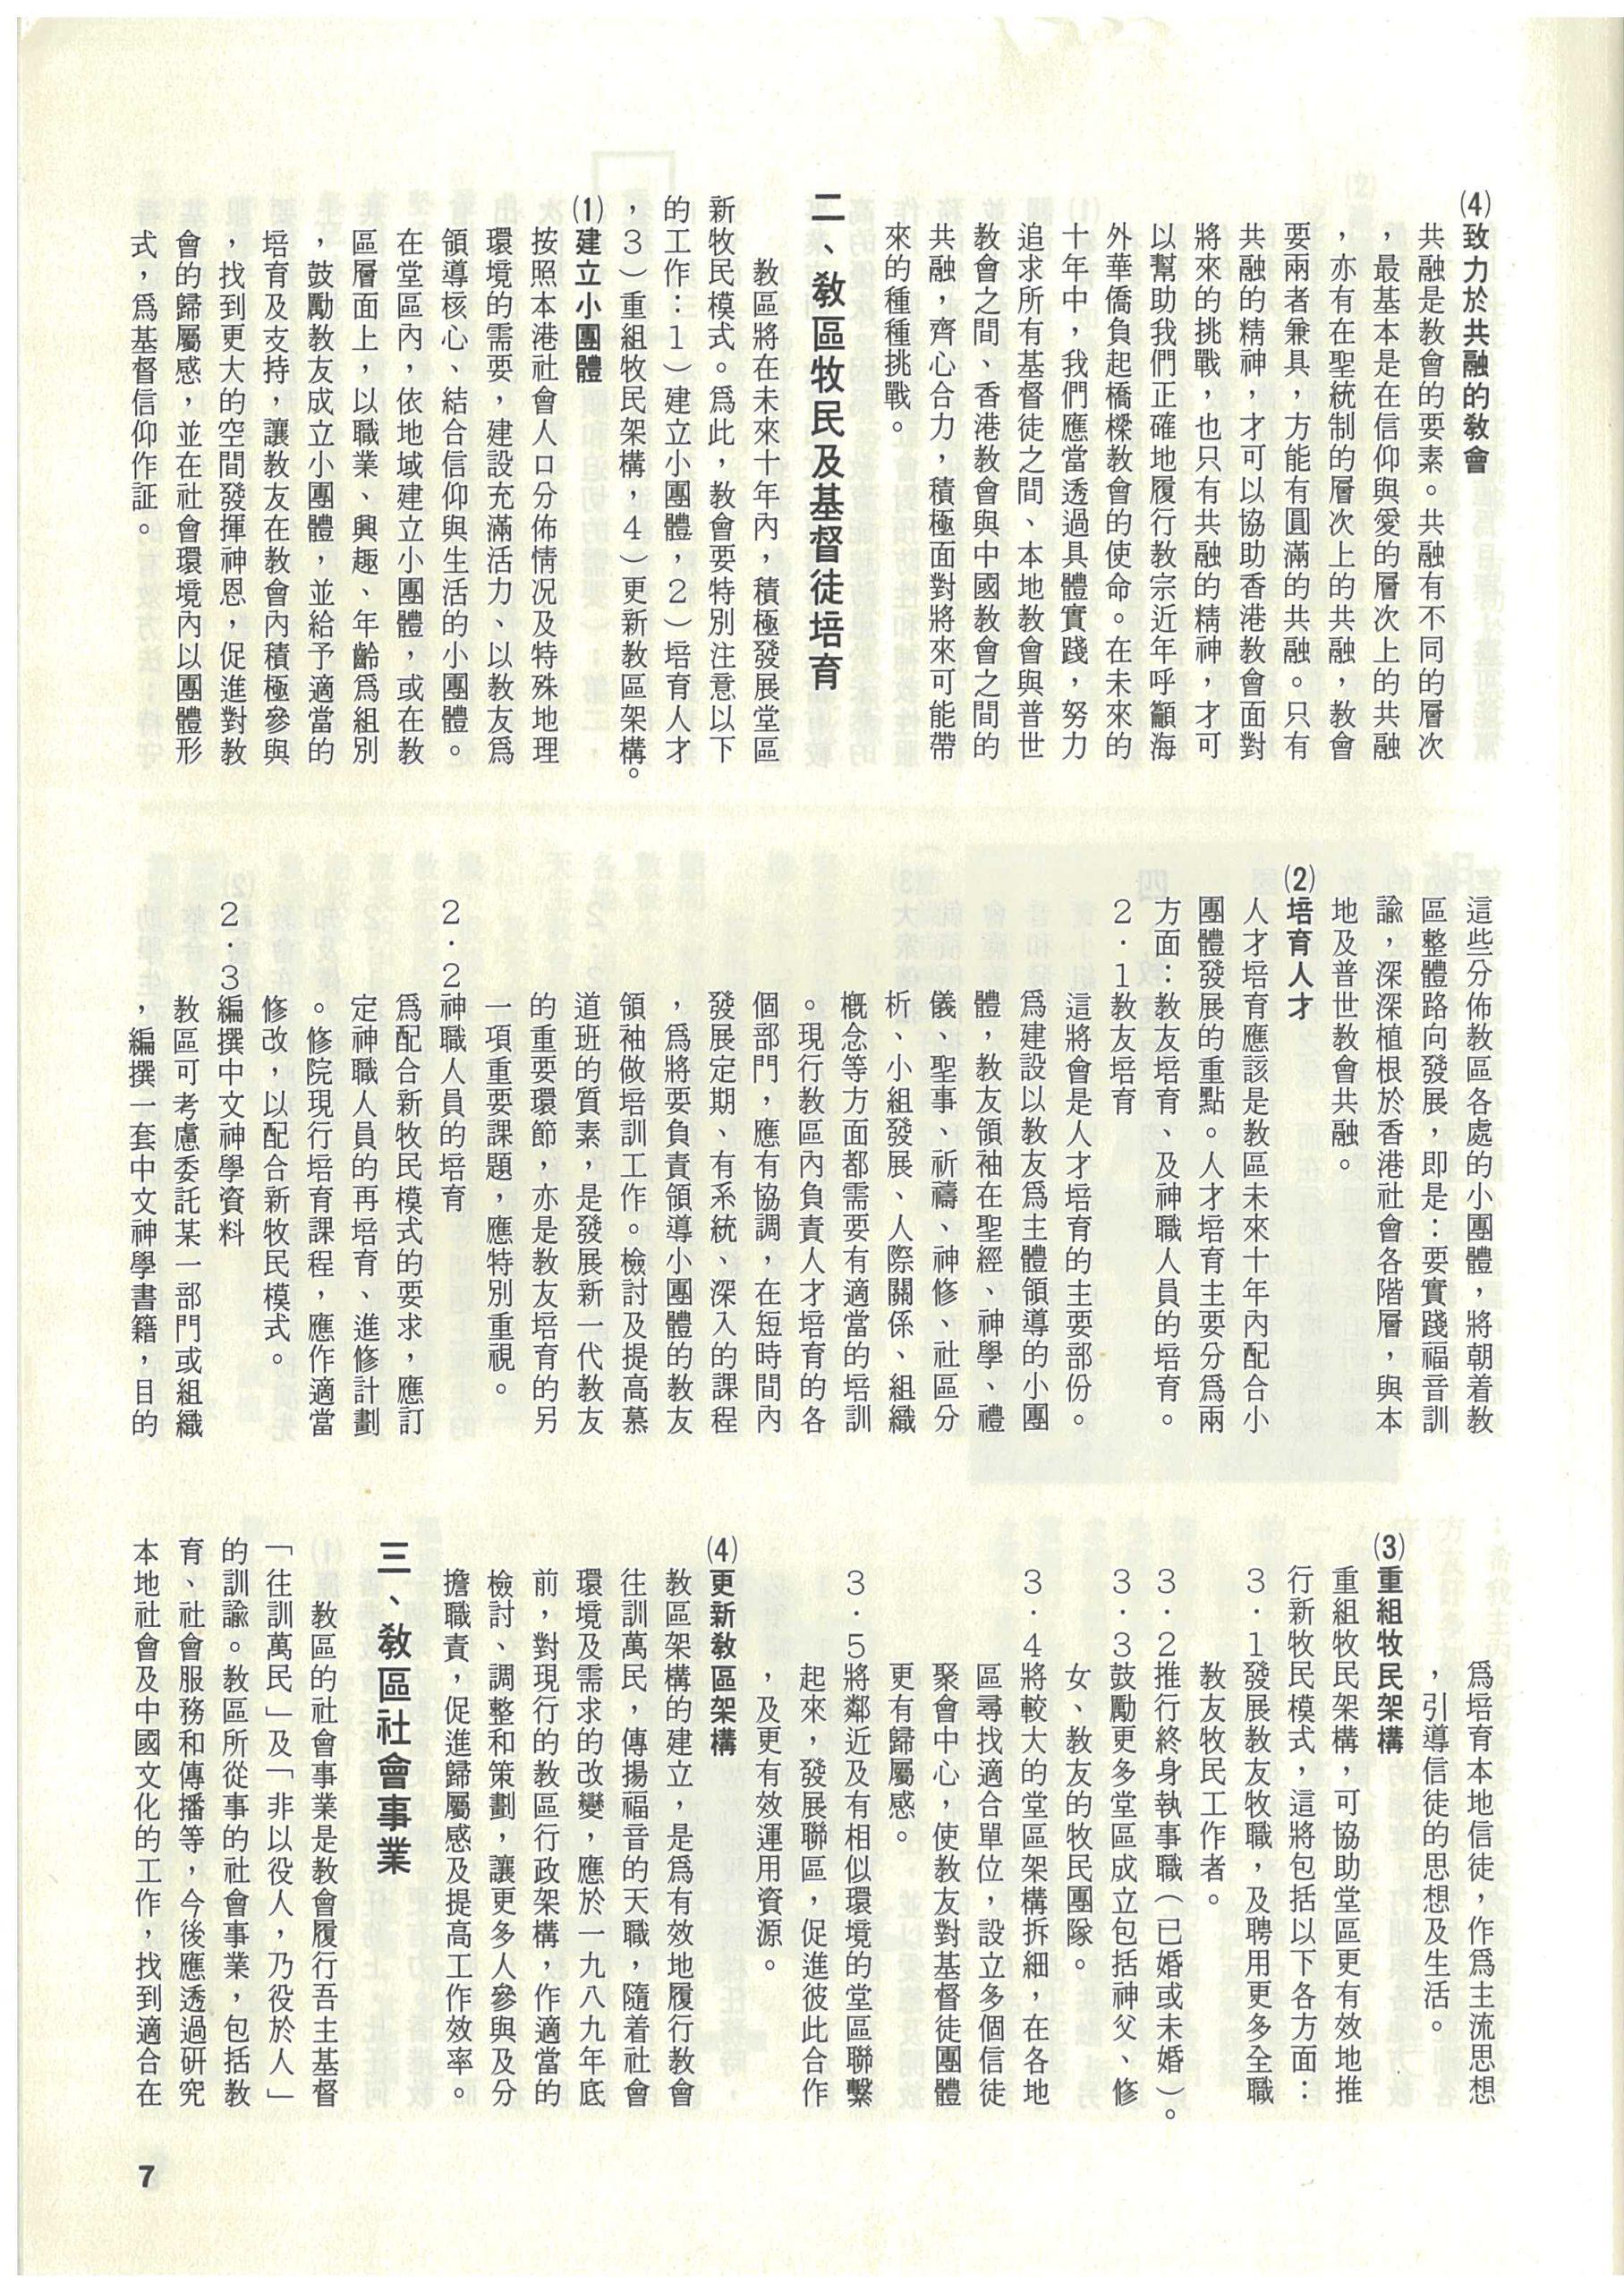 ⑷致力於共融的敎會
共融是敎會的要素。共融有不同的層次
，最基本是在信仰與愛的層次上的共融
，亦有在聖統制的層次上的共融，敎會
要兩者兼具，方能有圓滿的共融。只有
共融的精神，才可以協助香港敎會面對
將來的挑戰，也只有共融的精神，才可
以幫助我們正確地履行敎宗近年呼籲海
外華僑負起橋樑敎會的使命。在未來的
十年中，我們應當透過具體實踐，努力
追求所有基督徒之間、本地敎會與普世
敎會之間、香港敎會與中國敎會之間的
共融，齊心合力，積極面對將來可能帶
來的種種挑戰。
二、敎區牧民及基督徒培育
敎區將在未來十年內，積極發展堂區
新牧民模式。爲此，敎會要特別注意以下
的工作：１）建立小團體，２）培育人才
，３）重組牧民架構，４）更新敎區架構。
⑴建立小團體
按照本港社會人口分佈情況及特殊地理
環境的需要，建設充滿活力、以敎友爲
領導核心、結合信仰與生活的小團體。
在堂區內，依地域建立小團體，或在敎
區層面上，以職業、興趣、年齡爲組別
，鼓勵敎友成立小團體，並給予適當的
培育及支持，讓敎友在敎會內積極參與
，找到更大的空間發揮神恩，促進對敎
會的歸屬感，並在社會環境內以團體形
式，爲基督信仰作証。
這些分佈敎區各處的小團體，將朝着敎
區整體路向發展，即是：要實踐福音訓
諭，深深植根於香港社會各階層，與本
地及普世敎會共融。
⑵培育人才
人才培育應該是敎區未來十年內配合小
團體發展的重點。人才培育主要分爲兩
方面：敎友培育、及神職人員的培育。
２．１敎友培育
這將會是人才培育的主要部份。
爲建設以敎友爲主體領導的小團
體，敎友領袖在聖經、神學、禮
儀、聖事、祈禱、神修、社區分
析、小組發展、人際關係、組織
概念等方面都需要有適當的培訓
。現行敎區內負責人才培育的各
個部門，應有協調，在短時間內
發展定期、有系統、深入的課程
，爲將要負責領導小團體的敎友
領袖做培訓工作。檢討及提高慕
道班的質素，是發展新一代敎友
的重要環節，亦是敎友培育的另
一項重要課題，應特別重視。
２．２神職人員的培育
爲配合新牧民模式的要求，應訂
定神職人員的再培育、進修計劃
。修院現行培育課程，應作適當
修改，以配合新牧民模式。
２．３編撰中文神學資料
敎區可考慮委託某一部門或組織
，編撰一套中文神學書籍，目的
爲培育本地信徒，作爲主流思想
，引導信徒的思想及生活。
⑶重組牧民架構
重組牧民架構，可協助堂區更有效地推
行新牧民模式，這將包括以下各方面：
３．１發展敎友牧職，及聘用更多全職
敎友牧民工作者。
３．２推行終身執事職（已婚或未婚）。
３．３鼓勵更多堂區成立包括神父、修
女、敎友的牧民團隊。
３．４將較大的堂區架構拆細，在各地
區尋找適合單位，設立多個信徒
聚會中心，使敎友對基督徒團體
更有歸屬感。
３．５將鄰近及有相似環境的堂區聯繫
起來，發展聯區，促進彼此合作
，及更有效運用資源。
⑷更新敎區架構
敎區架構的建立，是爲有效地履行敎會
往訓萬民，傳揚福音的天職，隨着社會
環境及需求的改變，應於一九八九年底
前，對現行的敎區行政架構，作適當的
檢討、調整和策劃，讓更多人參與及分
擔職責，促進歸屬感及提高工作效率。
三、敎區社會事業
敎區的社會事業是敎會履行吾主基督
「往訓萬民」及「非以役人，乃役於人」
的訓諭。敎區所從事的社會事業，包括敎
育、社會服務和傳播等，今後應透過研究
本地社會及中國文化的工作，找到適合在
7